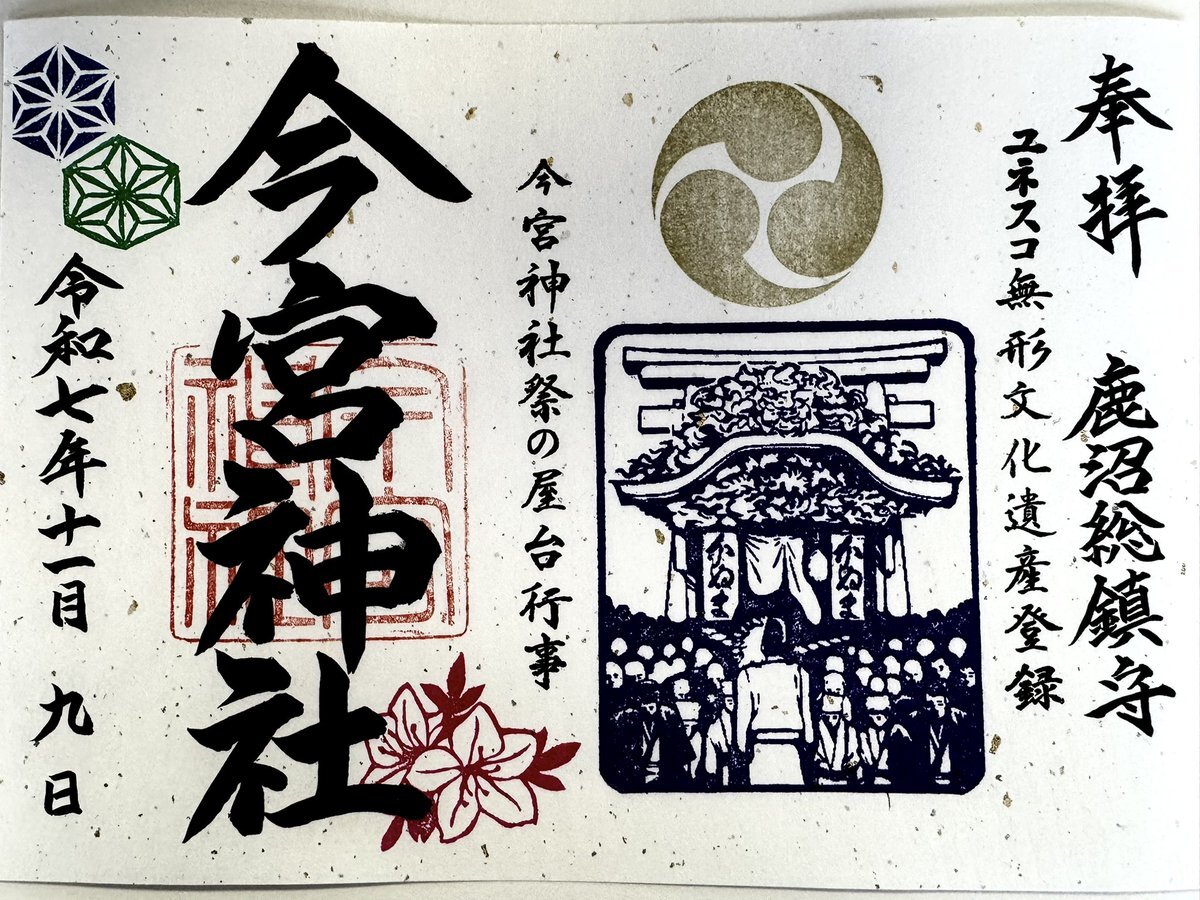 奉拝 鹿沼総鎮守
ユネスコ無形文化遺産登録
今宮神社祭の屋台行事
今宮神社
令和七年十一月 九日